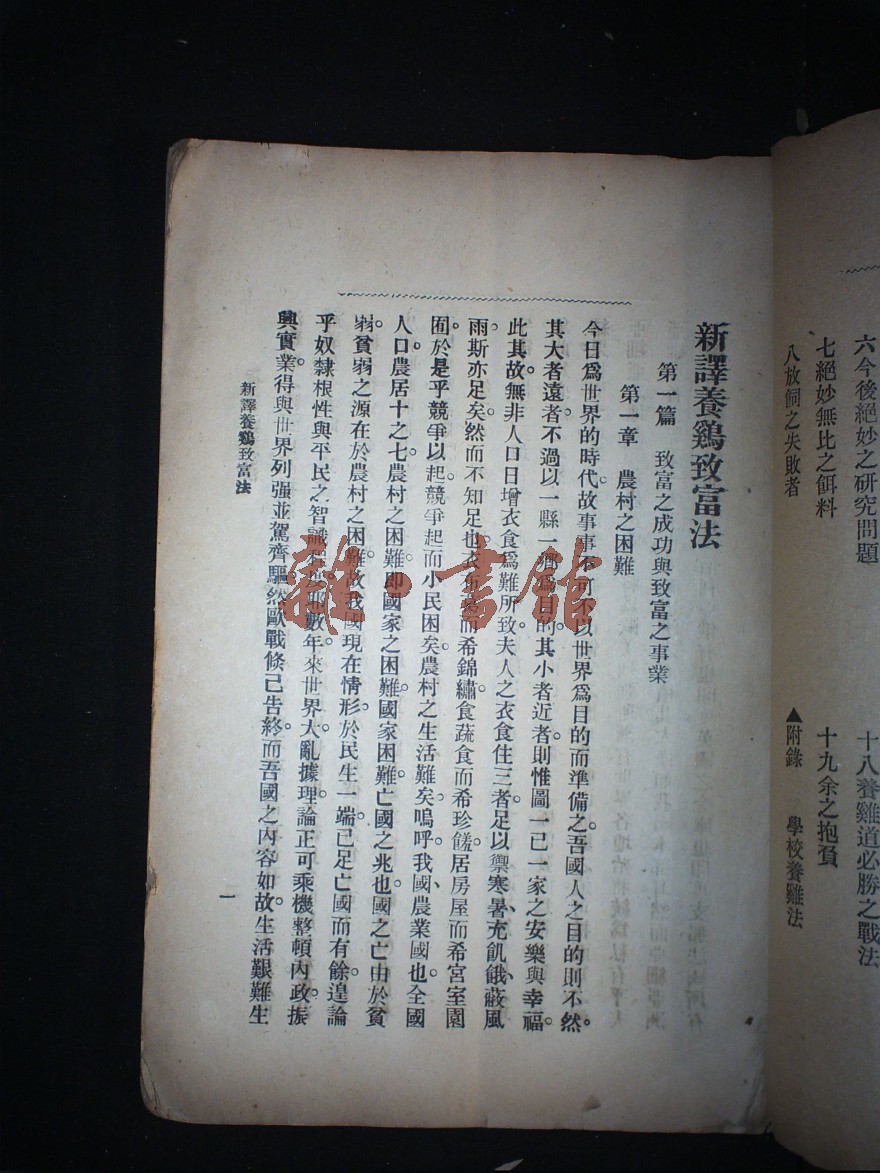 六今後絕妙之研究問題
十八養雞道必勝之戰法
七絕妙無比之餌料
十九余之抱負
八放飼之失敗者
▲附錄 學校養雞法
新譯養鷄致富法
第一篇 致富之成功與致富之事業
第一章 農村之困難
今日爲世界的時代故事事不可不以世界爲目的而準備之。吾國人之目的則不然。
其大者遠者不過以一縣一鄉爲目的。其小者近者則惟圖一己一家之安樂與幸福。
此其故無非人口日增衣食爲難所致夫人之衣食住三者足以禦寒暑、充飢餓、蔽風
雨斯亦足矣。然而不知足也衣布而希錦繡。食蔬食而希珍饈。居房屋而希宮室園
囿。於是乎競爭以起。競爭起而小民困矣。農村之生活難矣。嗚呼。我國農業國也。全國
人口。農居十之七。農村之困難。即國家之困難。國家困難。亡國之兆也。國之亡由於貧
弱。貧弱之源在於農村之困難。故我國現在情形。於民生一端。已足亡國而有餘。遑論
乎奴隸根性與平民之智識程度耶。數年來世界大亂。據理論正可乘機整頓內政。振
興實業。得與世界列强並駕齊驅。然歐戰倏已告終。而吾國之內容如故。生活艱難生
新譯養鷄致富法
一
雜·書館